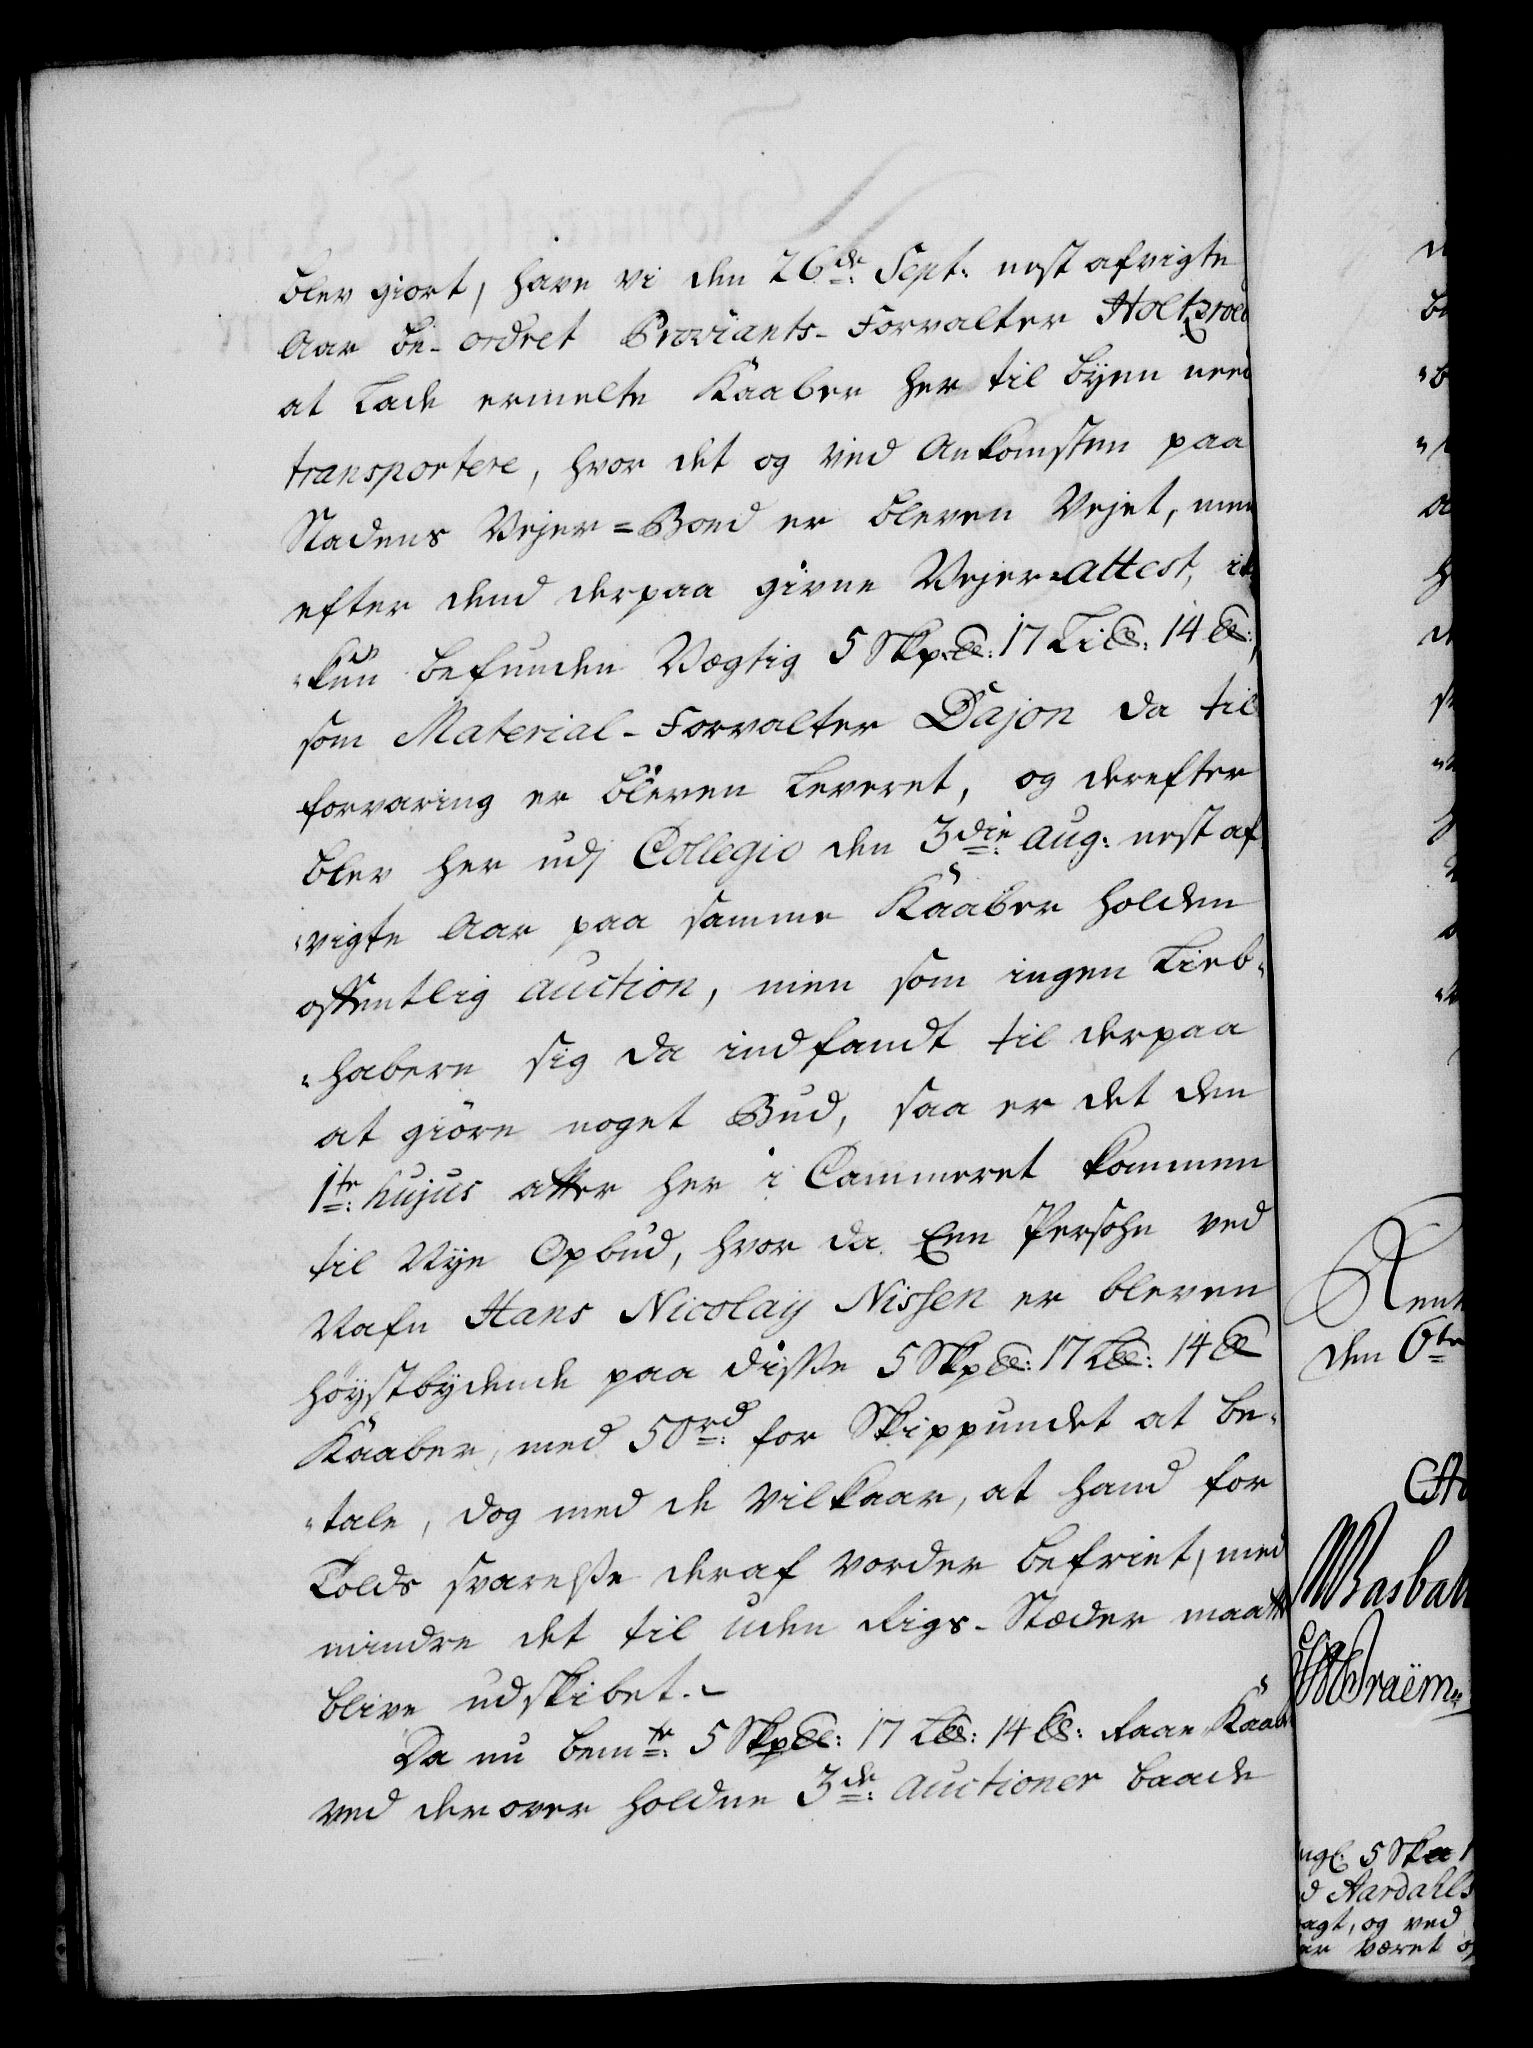 blev giort, have vi den 26de: Sept: nest afvigte
Aar be-ordret Proviants-Forvalter
at Lade ermelte Kaaber her til byen need
transportere, hvor det og ved Ankomsten paa
Stadens Vejer=Boed er bleven Vejet, men
efter dend derpaa givne Vejer-attest,
kun befunden Vægtig 5 Skp℔: 17 Li℔: 14 ℔:,
som Material-Forvalter Dajon da til
forvaring er bleven Leveret, og derefter
blev her udj Collegio den 3die: Aug: nest af
vigte Aar paa samme Kaaber holden
offentlig auction, men som ingen Lieb-
-habere sig da indfandt til derpaa
at giöre noget Bud, saa er det den
1te: hujus atter her i Cammeret kommen
til Nye Opbud, hvor da Een Persohn ved
Nafn Hans Nicolaij Nissen er bleven
höystbydende paa disse 5 Skp℔: 17 L℔: 14 ℔
Kaaber, med 50rd: for Skippundet at be-
-tale, dog med de Vilkaar, at hand for
Tolds svarelse deraf vorder befriet, med
mindre det til uden Rigs-Stæder maatte
blive udskibet.-
Da nu bemte: 5 Skp℔: 17 L℔: 14 ℔: Raae Kaaber
ved derover holdne 3de: Auctioner baade
den 6te
5 Skp
Aardahls
agt, og ved
er været